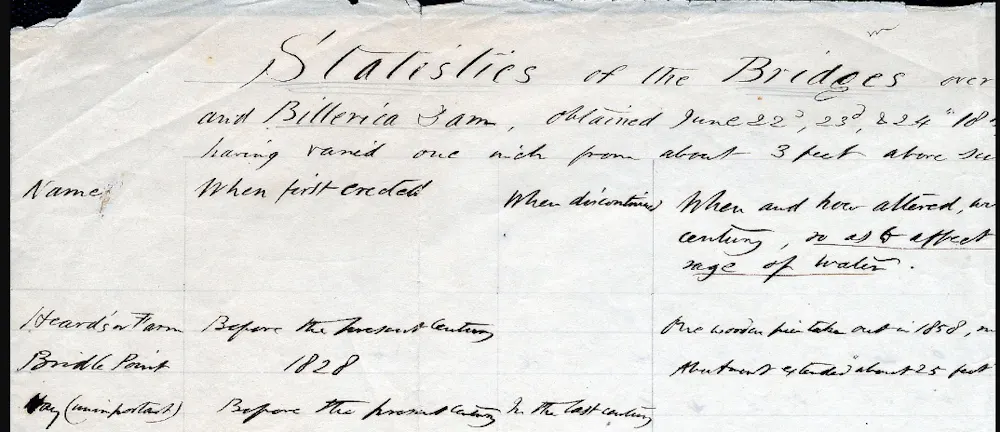 Statistics of the Bridges over
and Billerica Dam, obtained June 22d, 23d, & 24th 18
having varied one inch from about 3 feet above su
Name When first erected When discontinued When and how altered,
century, so as to affect
sage of water.
Heard's or Farm Before the present Century One wooden pier taken out in 1858,
Bridle Point 1828 Abutment extended about 25 feet
Hay (unimportant) Before the present Century In the last century